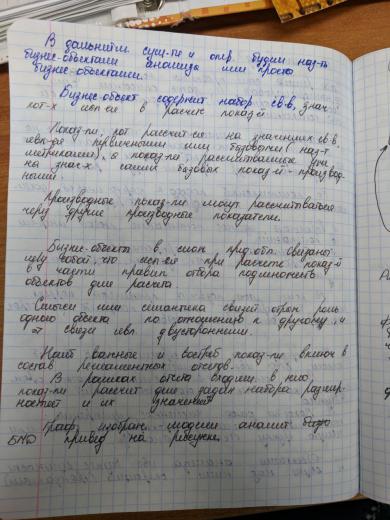 В дальнейш. сущ-ти и опер. будем наз-ть
бизнес-объектами анализа или просто
бизнес-объектами.
Бизнес-объект содержит набор св-в, знач.
кот-х исп-ся в расчёте показ-й
Показ-ли, кот рассчит-ся на значениях св-в,
явл-ся первичными или базовыми (наз-т
метриками), а показ-ли рассчитываемые уже
на знач-х самих базовых показ-й - производ-
ными.
Производные показ-ли могут рассчитываться
через другие производные показатели.
Бизнес-объекты в своей пред. обл. связаны
между собой, что исп-ся при расчёте показ-й
в части правил отбора подмножеств
объектов для расчёта.
Смысл или семантика связей отраж роль
одного объекта по отношению к другому, и
эт связи явл двусторонними.
Наиб важные и востреб показ-ли включ в
состав регламентных отчётов.
В рамках отчёта входящие в него
показ-ли рассчит для задан набора размер-
ностей и их значений
Граф. изображ. модели анализа
БНД привед на рисунке.